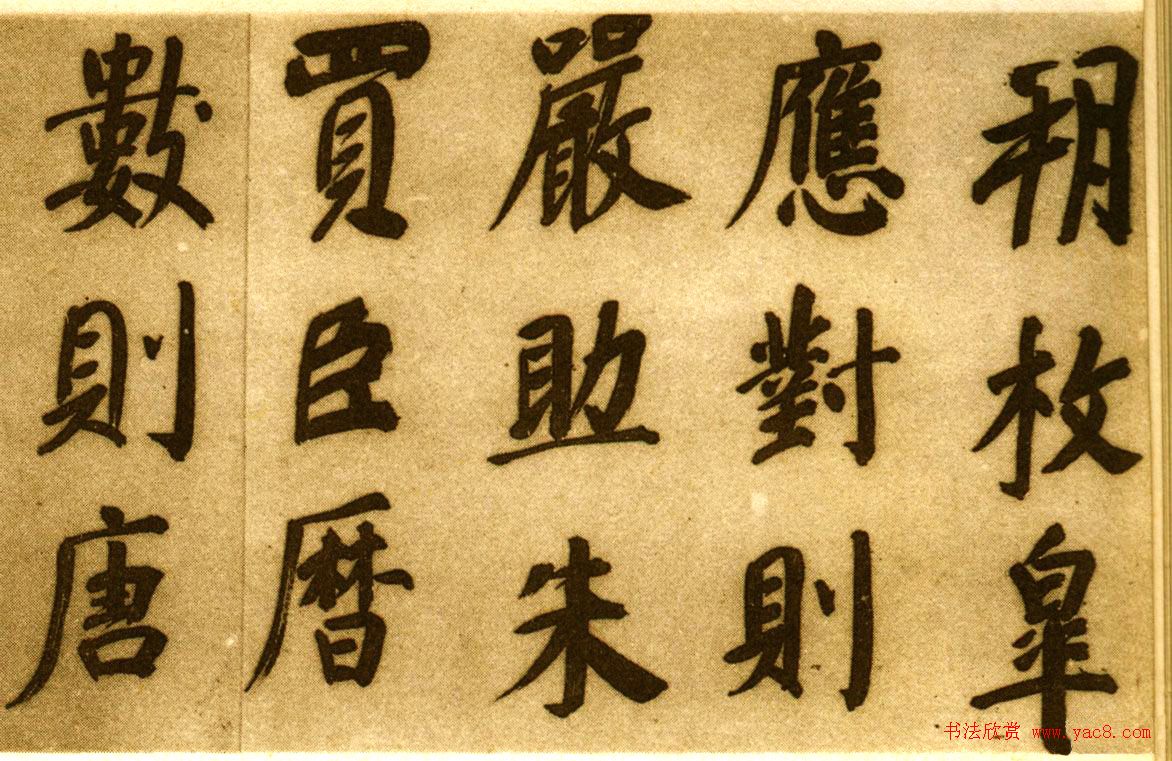 朔枚皋
應對則
嚴助朱
買臣曆
數則唐
书法欣赏 www.yac8.com